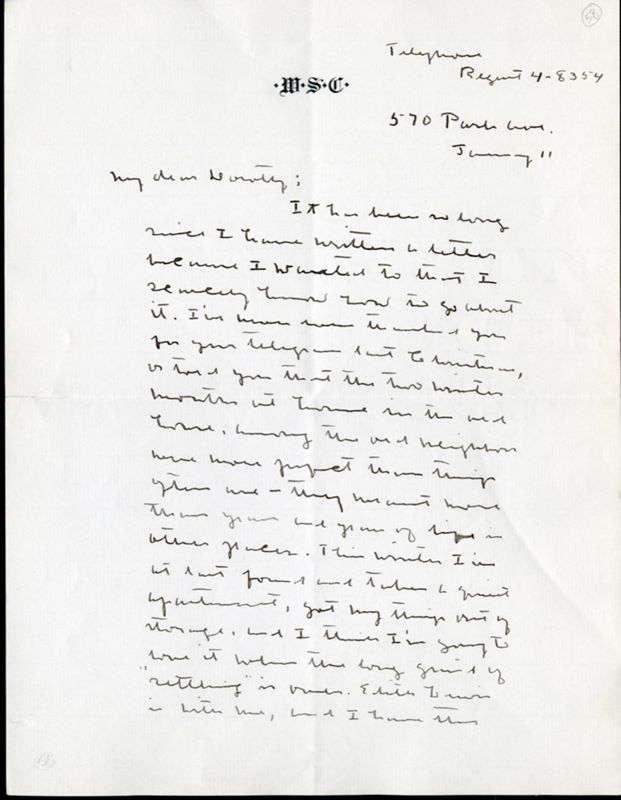 58
Telephone
Regent 4-8354
·W·S·C·
570 Park Ave.
January 11
My dear Dorothy;
It has been so long
since I have written a letter
because I wanted to that I
scarcely know how to go about
it. I've never even thanked you
for your telegram last Christmas,
or told you that the two winter
months at home in the old
house, among the old neighbors
were more perfect than things
often are – they meant more
than years and years of life in
other places. This winter I've
at last found and taken a quiet
apartment, got my things out of
storage, and I think I'm going to
love it when the long grind of
"settling" is over. Edith Lewis
is with me, and I have the
58